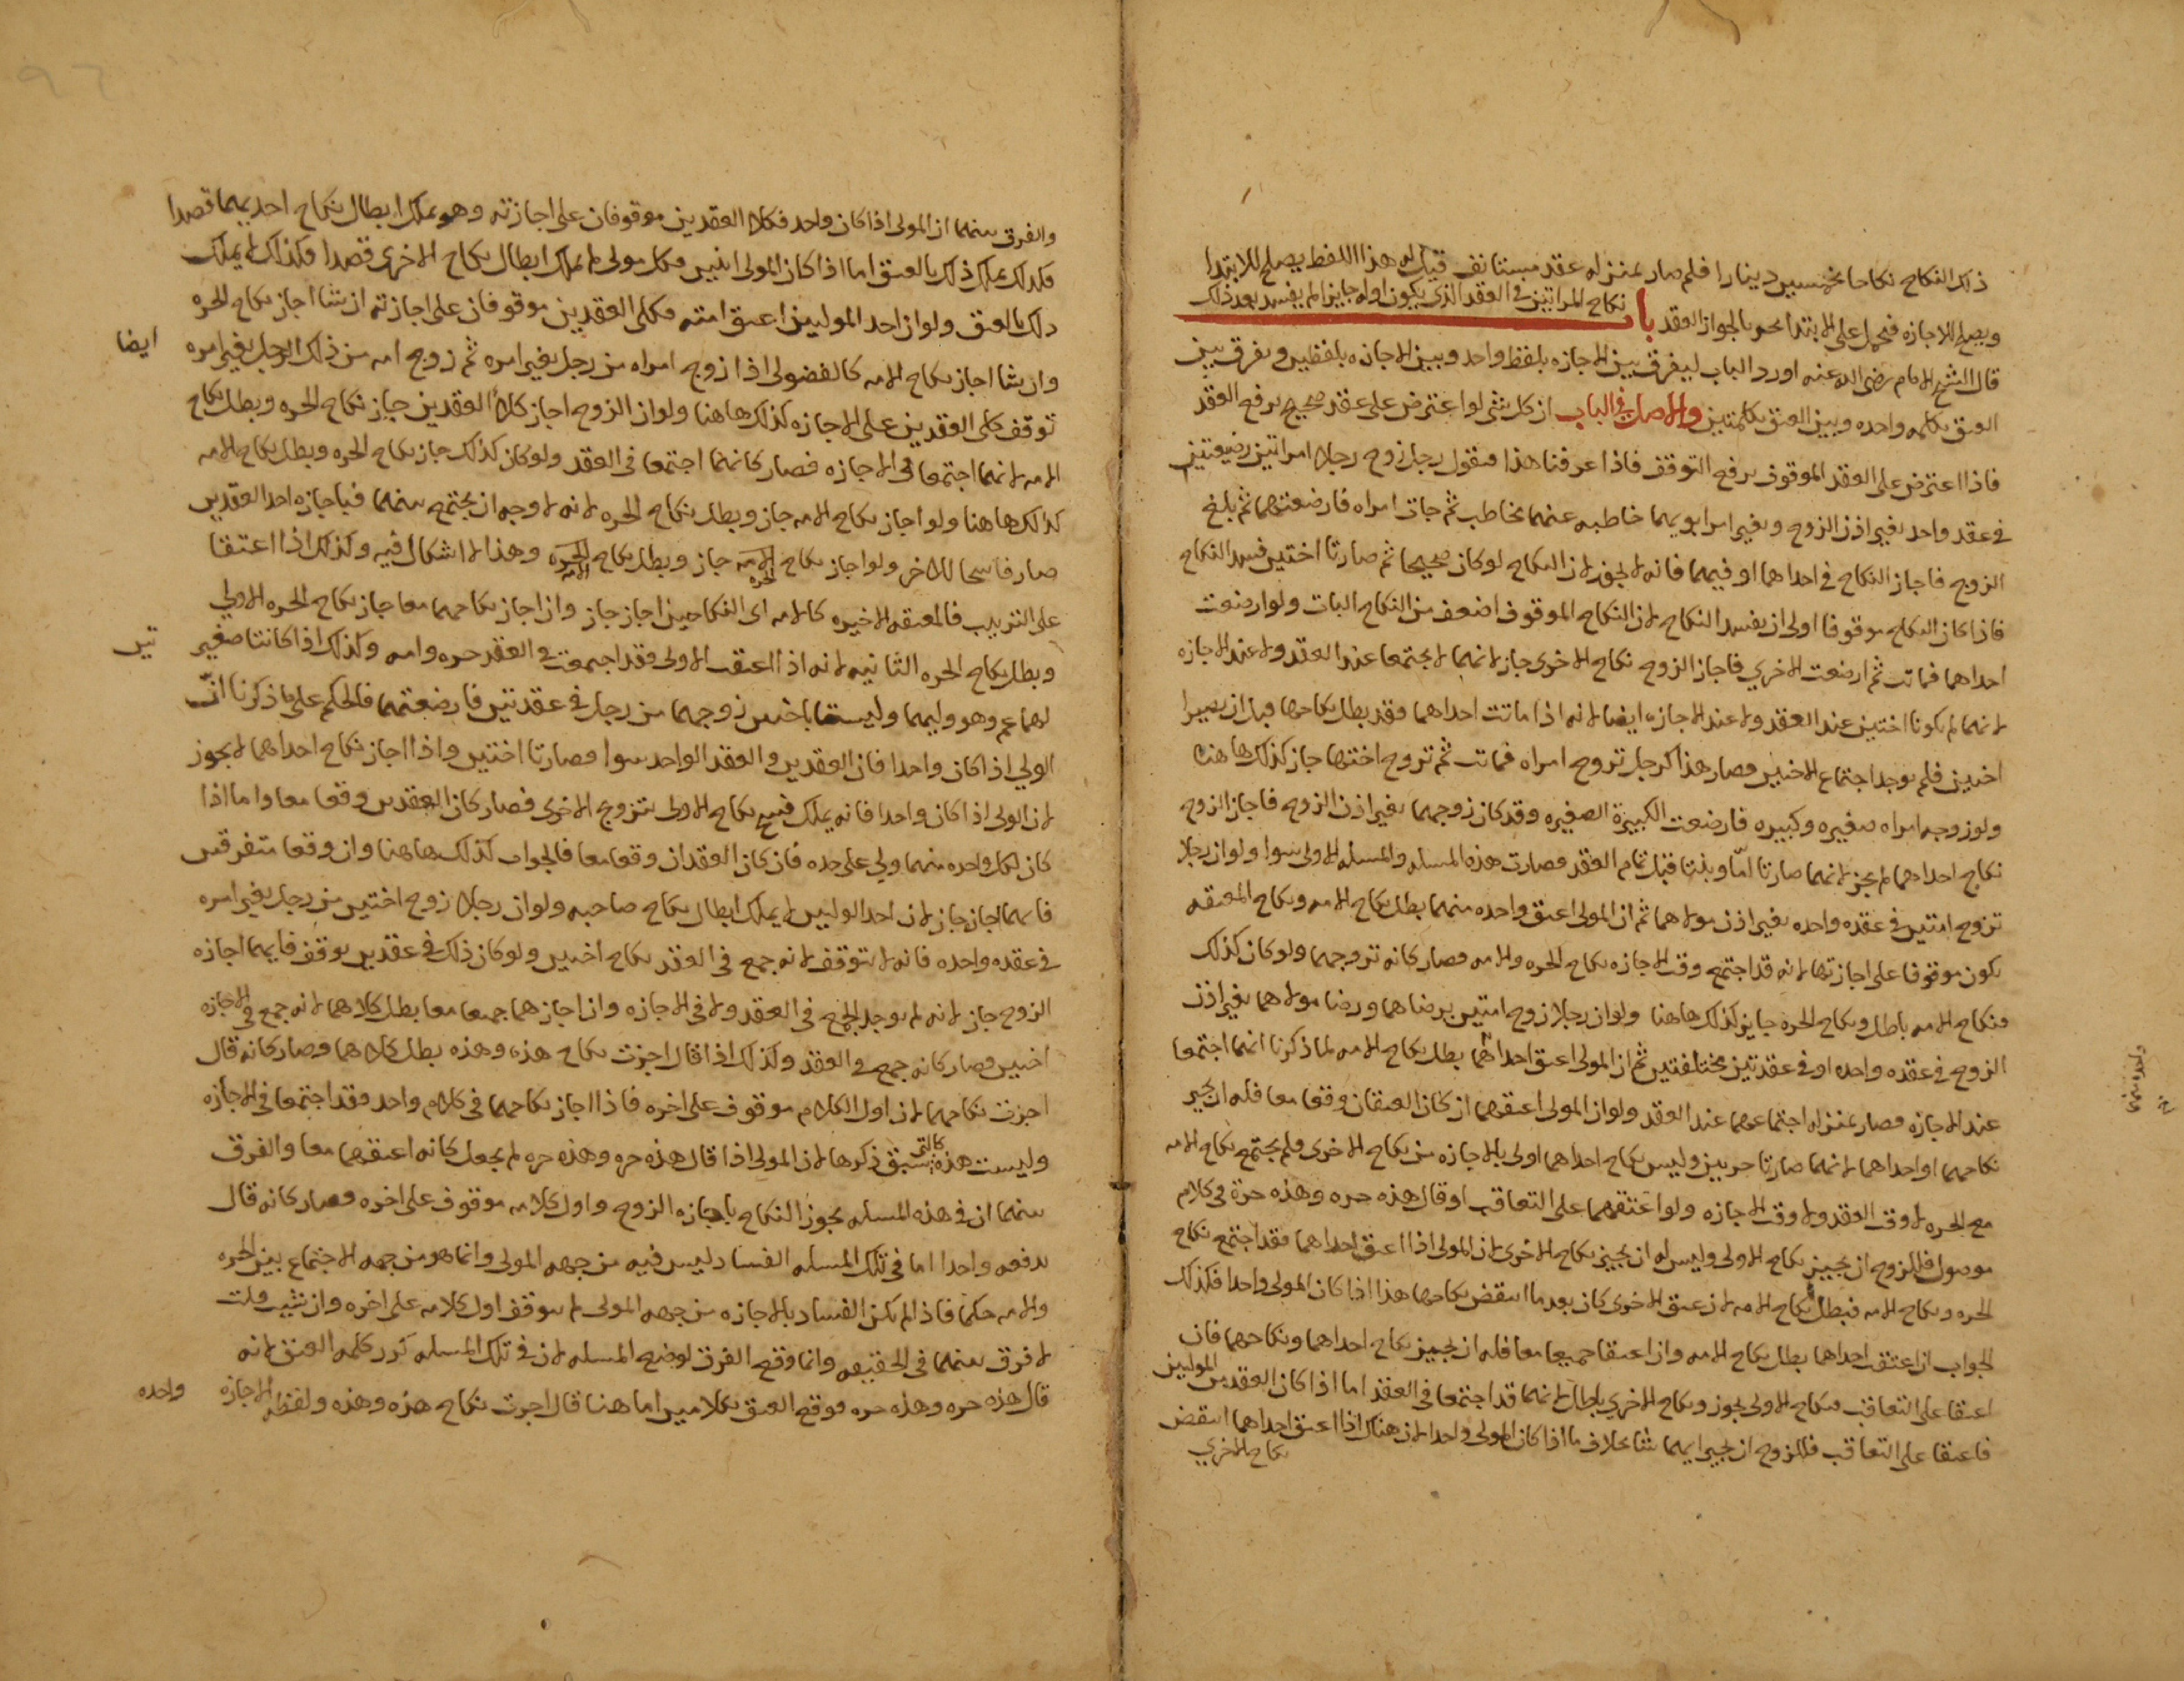 ذلك النكاح نكاحا بخمسين دينارا فلم صار بمنزله عقد مستانف قيل له هذا اللفظ يصلح للابتدا
ويصلح للاجازه فيحمل على الابتدا بحو بالجواز العقد باب نكاح المراتين في العقد الذي يكون اوله جايزا لم يفسد بعد ذلك
قال الشيخ الامام رضي الله عنه اورد الباب ليفرق بين الاجازه بلفظ واحد وبين الاجازه بلفظين وبفرق بين
العتق بكلمه واحده وبين العتق بكلمتين والاصل في الباب ان كل شي لو اعترض على عقد صحيح يرفع العقد
فاذا اعترض على العقد الموقوف يرفع التوقف فاذا عرفنا هذا فنقول رجل زوج رجلا امراتين رضيعتين
في عقد واحد بغير اذن الزوج وبغير امر ابويهما خاطبه عنهما مخاطب ثم جات امراه فارضعتهما ثم بلغ
الزوج فاجاز النكاح في احداهما او فيهما فانه لا يجوز لان النكاح لو كان صحيحا ثم صارتا اختين فسد النكاح
فاذا كان النكاح موقوفا اولى ان يفسد النكاح لان النكاح الموقوف اضعف من النكاح البات ولو ارضعت
احداهما فماتت ثم ارضعت الاخري فاجاز الزوج نكاح الاخرى جاز لانهما لم يجتمعا عند العقد ولا عند الاجازه
لانهما لم يكونا اختين عند العقد ولا عند الاجازه ايضا لانه اذا ماتت احداهما فقد بطل نكاحها قبل ان يصيرا
اختين فلم يوجد اجتماع الاختين فصار هذا كرجل تزوج امراه فماتت ثم تزوج اختها جاز كذلك هاهنا
ولو زوجه امراه صغيره وكبيره فارضعت الكبيرة الصغيره وقد كان زوجهما بغير اذن الزوج فاجاز الزوج
نكاح احداهما لم يجز لانهما صارتا امّا وبنتا قبل تمام العقد فصارت هذه المسله والمسله الاولى سوا ولو ان رجلا
تزوج امتين في عقده واحده بغير اذن مولاهما ثم ان المولى اعتق واحده منهما بطل نكاح الامه ونكاح المعتقه
يكون موقوفا على اجازتها لانه قد اجتمع وقت الاجازه نكاح الحره والامه فصار كانه تزوجهما ولو كان كذلك
فنكاح الامه باطل ونكاح الحره جايز كذلك هاهنا ولو ان رجلا زوج امتين برضاهما ورضا مولاهما بغير اذن
الزوج في عقده واحده او في عقدتين مختلفتين ثم ان المولى اعتق احداهما بطل نكاح الامه لما ذكرنا انهما اجتمعا
عند الاجازه فصار بمنزله اجتماعهما عند العقد ولو ان المولى اعتقهما ان كان العتقان وقعا معا فله ان يجيز
نكاحهما او احداهما لانهما صارتا حريين وليس نكاح احداهما اولى بالاجازه من نكاح الاخرى فلم يجتمع نكاح الامه
مع الحره لا وقت العقد ولا وقت الاجازه ولو اعتقهما على التعاقب او قال هذه حره وهذه حرة في كلام
موصول فللزوج ان يجيز نكاح الاولى وليس له ان يجيز نكاح الاخرى لان المولى اذا اعتق احداهما فقد اجتمع نكاح
الحره ونكاح الامه فبطل نكاح الامه لان عتق الاخرى كان بعد ما انتقض نكاحها هذا اذا كان المولى واحدا فكذلك
الجواب ان اعتقت احداهما بطل نكاح الامه وان اعتقا جميعا معا فله ان يجيز نكاح احداهما ونكاحهما فان
اعتقا على التعاقب فنكاح الاولى يجوز ونكاح الاخري باطل لانهما قد اجتمعا في العقد اما اذا كان العقد من الموليين
فاعتقا على التعاقب فللزوج ان يجيز ايهما شا بخلاف ما اذا كان المولى واحدا لان هناك اذا اعتق احداهما انتقض
نكاح الاخري
والفرق بينهما ان المولى اذا كان واحد فكلا العقدين موقوفان على اجازته وهو يملك ابطال نكاح احديهما قصدا
فكذلك يملك ذلك بالعتق اما اذا كان المولى اثنين فكل مولى لا يملك ابطال نكاح الاخرى قصدا فكذلك لا يملك
ذلك بالعتق ولو ان احد الموليين اعتق امته فكلى العقدين موقوفان على اجازته ان شا اجاز نكاح الحره
وان شا اجاز نكاح الامه كالفضولى اذا زوج امراه من رجل بغير امره ثم زوج امه من ذلك الرجل بغير امره ايضا
توقف كلى العقدين على الاجازه كذلك هاهنا ولو ان الزوج اجاز كلا العقدين جاز نكاح الحره وبطل نكاح
الامه لانهما اجتمعا في الاجازه فصار كانهما اجتمعا في العقد ولو كان كذلك جاز نكاح الحره وبطل نكاح الامه
كذلك هاهنا ولو اجاز نكاح الامه جاز وبطل نكاح الحره لانه لا وجه ان يجتمع بينهما فباجازه احد العقدين
صار فاسخا للاخر ولو اجاز نكاح الامه الحره جاز وبطل نكاح الحره الامه وهذا لا اشكال فيه وكذلك اذا اعتقا
على الترتيب فالمعتقه الاخيره كالامه اى النكاحين اجاز جاز وان اجاز نكاحهما معا جاز نكاح الحره الاولي
وبطل نكاح الحره الثانيه لانه اذا اعتقت الاولى فقد اجتمعت في العقد حره وامه وكذلك اذا كانتا صغير تين
لهما عم وهو وليهما وليستا باختين زوجهما من رجل في عقدتين فارضعتهما فالحكم على ما ذكرنا انّ
الولي اذا كان واحدا فان العقدين والعقد الواحد سوا فصارتا اختين واذا اجاز نكاح احداهما لا يجوز
لان الولى اذا كان واحدا فانه يملك فسخ نكاح الاولى بتزوج الاخرى فصار كان العقدين وقعا معا واما اذا
كان لكل واحده منهما ولي على حده فان كان العقدان وقعا معا فالجواب كذلك هاهنا وان وقعا متفرقين
فايهما اجاز جاز لان احد الوليين لا يملك ابطال نكاح صاحبه ولو ان رجلا زوج اختين من رجل بغير امره
في عقده واحده فانه لا يتوقف لانه جمع في العقد نكاح اختين ولو كان ذلك في عقدين يوقف فايهما اجازه
الزوج جاز لانه لم يوجد الجمع في العقد ولا في الاجازه وان اجازهما جميعا معا بطل كلاهما لانه جمع في الاجازه
اختين فصار كانه جمع في العقد وكذلك اذا قال اجزت نكاح هذه وهذه بطل كلاهما وصار كانه قال
اجزت نكاحهما لان اول الكلام موقوف على اخره فاذا اجاز نكاحهما في كلام واحد فقد اجتمعا في الاجازه
وليست هذه كالتي سبق ذكرها لان المولى اذا قال هذه حره وهذه حره لم يجعل كانه اعتقهما معا والفرق
بينهما ان في هذه المسله يجوز النكاح باجازه الزوج واول كلامه موقوف على اخره وصار كانه قال
بدفعه واحدا اما في تلك المسله الفساد ليس فيه من جهه المولى وانما هو من جهه الاجتماع بين الحره
والامه حكما فاذا لم يكن الفساد بالاجازه من جهه المولى لم يتوقف اول كلامه على اخره وان شيت قلت
لا فرق بينهما في الحقيقه وانما وقع الفرق لوضع المسله لان في تلك المسله كرر كلمه العتق لانه
قال هذه حره وهذه حره فوقع العتق بكلامين اما هنا قال اجزت نكاح هذه وهذه ولفظه الاجازه واحده